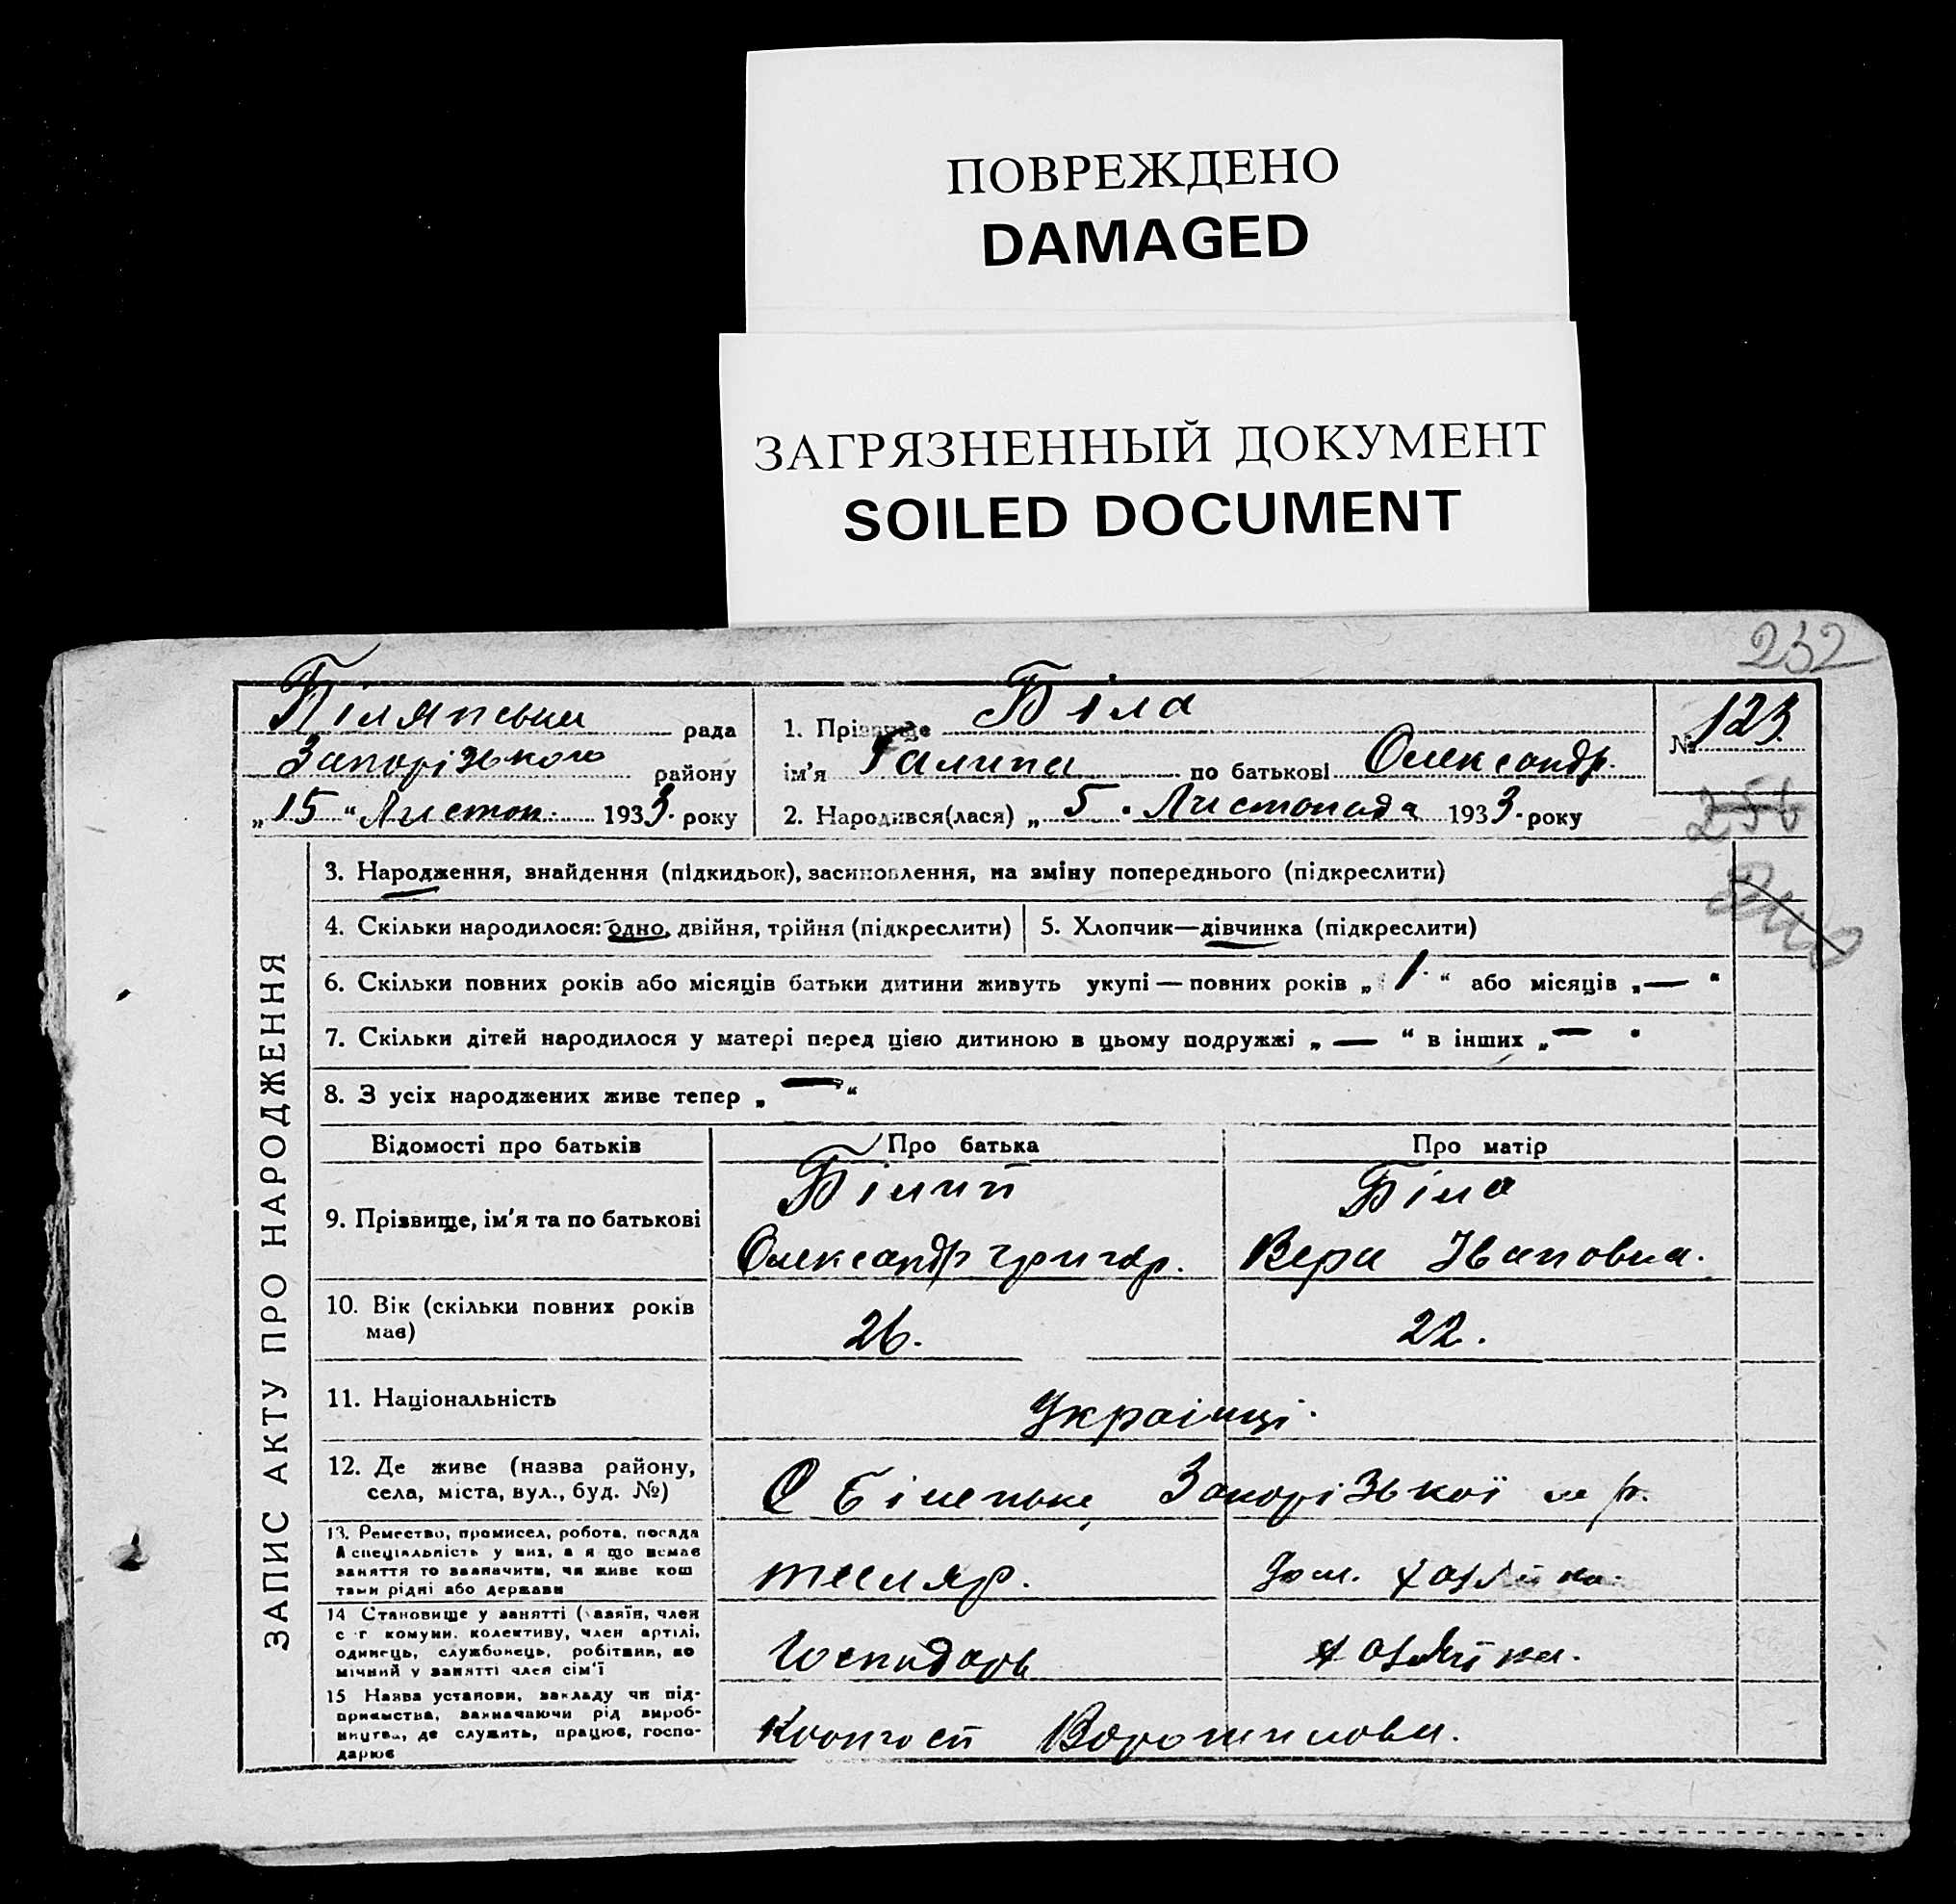 ПОВРЕЖДЕНО
DAMAGED
ЗАГРЯЗНЕННЫЙ ДОКУМЕНТ
SOILED DOCUMENT
232
рада
Запорізького району
„15“ Листоп. 1933. року
1. Прізвище Біла
ім'я Галина по батькові Олександр.
2. Народився(лася) „5“ Листопада 1933. року
№ 123.
256
ЗАПИС АКТУ ПРО НАРОДЖЕННЯ
3. Народження, знайдення (підкидьок), засиновлення, на зміну попереднього (підкреслити)
4. Скільки народилося: одно, двійня, трійня (підкреслити)
5. Хлопчик—дівчинка (підкреслити)
6. Скільки повних років або місяців батьки дитини живуть укупі — повних років „1.“ або місяців „—“
7. Скільки дітей народилося у матері перед цією дитиною в цьому подружжі „—“ в інших „—“
8. З усіх народжених живе тепер „—“
Відомості про батьків
Про батька
Про матір
9. Прізвище, ім'я та по батькові
Білий
Олександр Григор.
Біла
Вера Івановна.
10. Вік (скільки повних років
має)
26.
22.
11. Національність
Українці.
12. Де живе (назва району,
села, міста, вул., буд. №)
С Біленьке, Запорізької
13. Ремество, промисел, робота, посада
й спеціяльність у них, а я що немає
заняття то зазначити, чи живе кош
тами рідні або держави
тесляр.
Дом. хазяйка.
14 Становище у занятті (хазяїн, член
с г комуни. колективу, член артілі,
одинець, службовець, робітник, по
мічний у занятті член сім'ї
Господарь
хазяйка.
15 Назва установи, закладу чи під-
приємства, зазначаючи рід вироб-
ництва, де служить, працює, госпо-
дарює
Ворошилова.